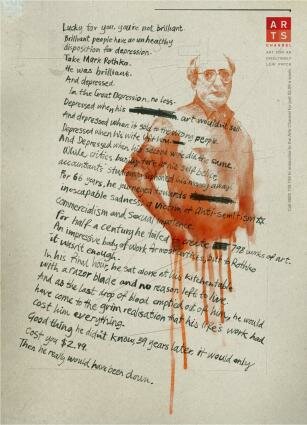 Lucky for you, you're not brilliant.
Brilliant people have an unhealthy
disposition for depression.
Take Mark Rothko.
He was brilliant.
And depressed.
In the Great Depression, no less.
Depressed when his art wouldn't sell.
And depressed when it sold to the wrong people.
Depressed when his wife
And Depressed when his
While critics
accountants
For 66 years, he journeyed towards
inescapable sadness. Victim of Anti-semitism
commercialism and sexual impotence.
For half a century he toiled to create 798 works of art.
An impressive body of work to most artists, but to Rothko
it wasn't enough.
In his final hour, he sat alone at his kitchen table
with a razor blade and no reason left to live.
And as the last drop of blood emptied out of him, he would
have come to the grim realisation that his life's work had
cost him everything.
Good thing he didn't know 39 years later, it would only
cost you $2.49.
Then he really would have been down.
ARTS
CHANNEL
ART FOR AN
UNSETTLINGLY
LOW PRICE